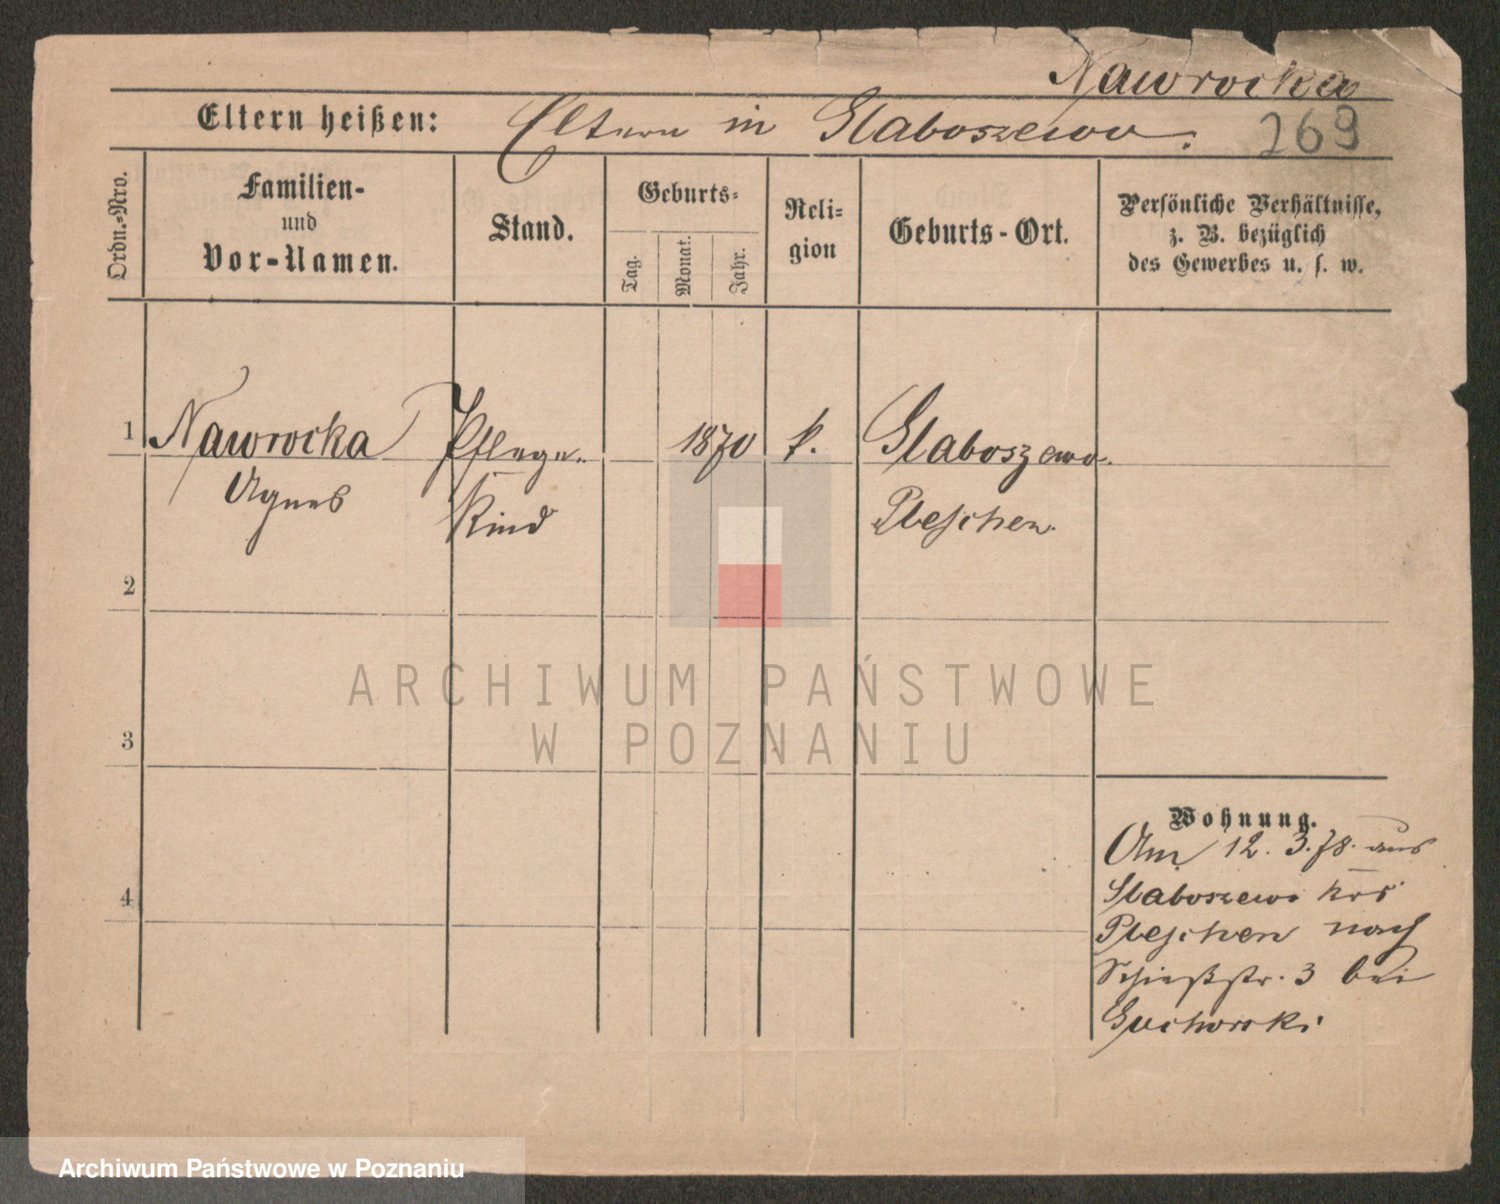 Nawrocka
269
Eltern heißen: Eltern in Slaboszewo.
Ordn.-Nro.
Familien-
und
Vor-Namen.
Stand.
Geburts-
Tag.
Monat.
Jahr.
Reli-
gion
Geburts-Ort.
Persönliche Verhältnisse,
z. B. bezüglich
des Gewerbes u. s. w.
1 Nawrocka Pflege- 1870 k. Slaboszewo
Agnes Kind Pleschen.
2
3
4
Wohnung.
Am 12. 3. 78. aus
Slaboszewo Krs
Pleschen nach
Schießstr. 3 bei
ARCHIWUM PAŃSTWOWE
W POZNANIU
Archiwum Państwowe w Poznaniu